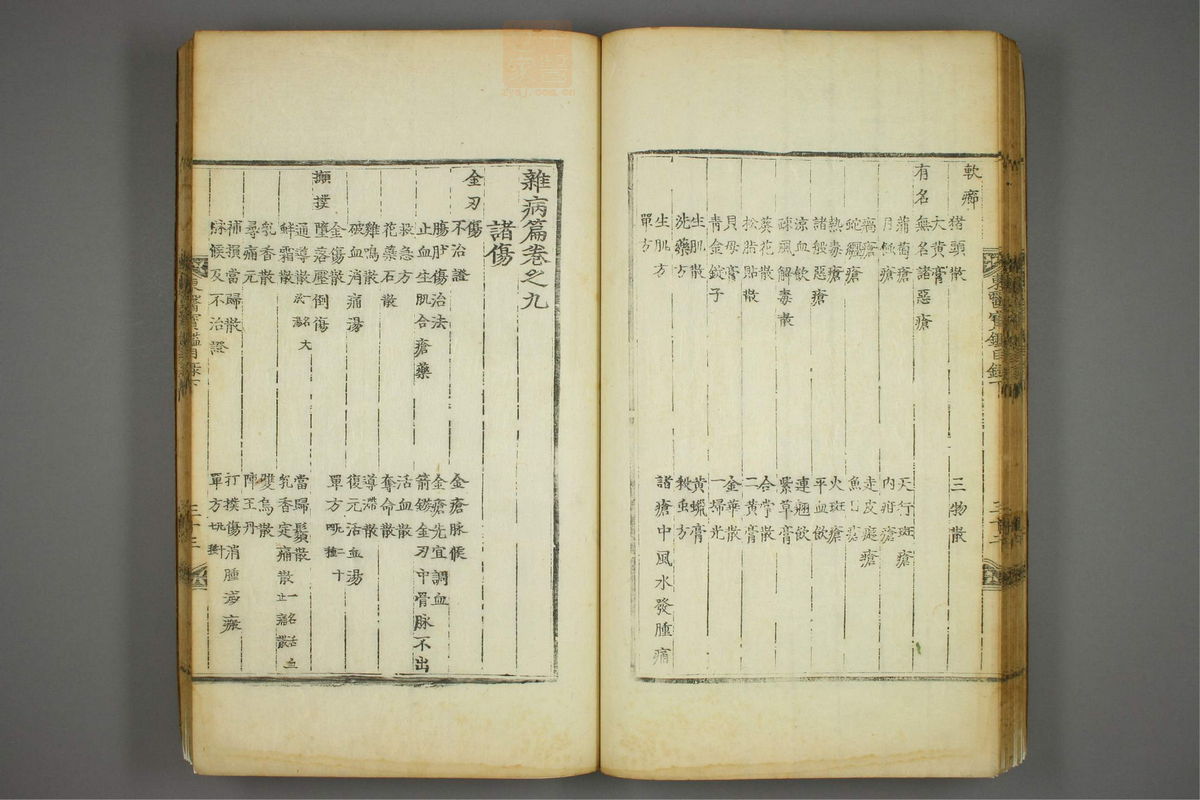 軟癤
猪頭散 三物散
大黃膏
有名無名諸惡瘡 天行斑瘡
蒲萄瘡 內疳瘡
月蝕瘡 走皮䠶瘡
癘瘡
蛇纏瘡
熱毒瘡 火斑瘡
諸般惡瘡 平血飮
涼血飮 連翹飮
疎風解毒散 紫草膏
葵花散 合掌散
松脂貼散 二黃膏
貝母膏 金華散
靑金錠子 一掃光
生肌散 黃蠟膏
洗藥方 殺虫方
生肌方 諸瘡中風水發腫痛
單方
東醫寶鑑目錄下 三十二
雜病篇卷之九
諸傷
金刃傷
不治證 金瘡脉候
腸肚傷治法 金瘡先宜調血
止血生肌合瘡藥 箭鏃金刃中骨脉不出
救急方 活血散
花藥石散 奪命散
雞鳴散 導滯散
破血消痛湯 復元活血湯
金傷散 單方
攧撲墮落壓倒傷
通導散 當歸鬚散
鮮霜散 乳香定痛散一名活血止痛散
乳香散 雙烏散
尋痛元 陣王丹
補損當歸散 打撲傷消腫滅瘢
脉候及不治證 單方
東醫寶鑑目錄下 三十三